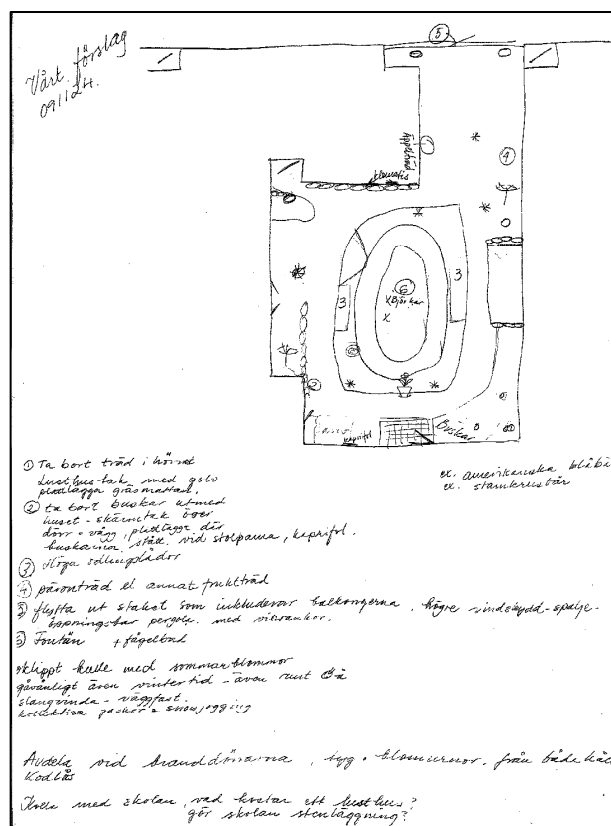 Vårt förslag
0911 LH.
5
äppelträd
1
klematis
4
3
3
6
Björkar
2
kaprifol
Buskar
① Ta bort träd i hörnet
Lusthus-tak med golv
plattlägga gräsmattan.
ex. amerikanska blåbär
ex. stamkrusbär
② ta bort buskar utmed
huset - skärmtak över
dörr + vägg, plattlägga där
buskarna stått. vid stolparna, kaprifol.
③ Höga odlingslådor
④ päronträd el annat fruktträd
⑤ flytta ut staket som inkluderar balkongerna. högre vindskydd-spalje-
öppningsbar pergola. med vinrankor.
Fontän + fågelbad
klippt kulle med sommarblommor
gåvänligt även vintertid - även runt
slangvinda - väggfast.
Avdela vid branddörrarna, tyg + blomurnor. från både håll
Kodlås
Kolla med skolan, vad kostar ett lusthus?
gör skolan stenläggning?